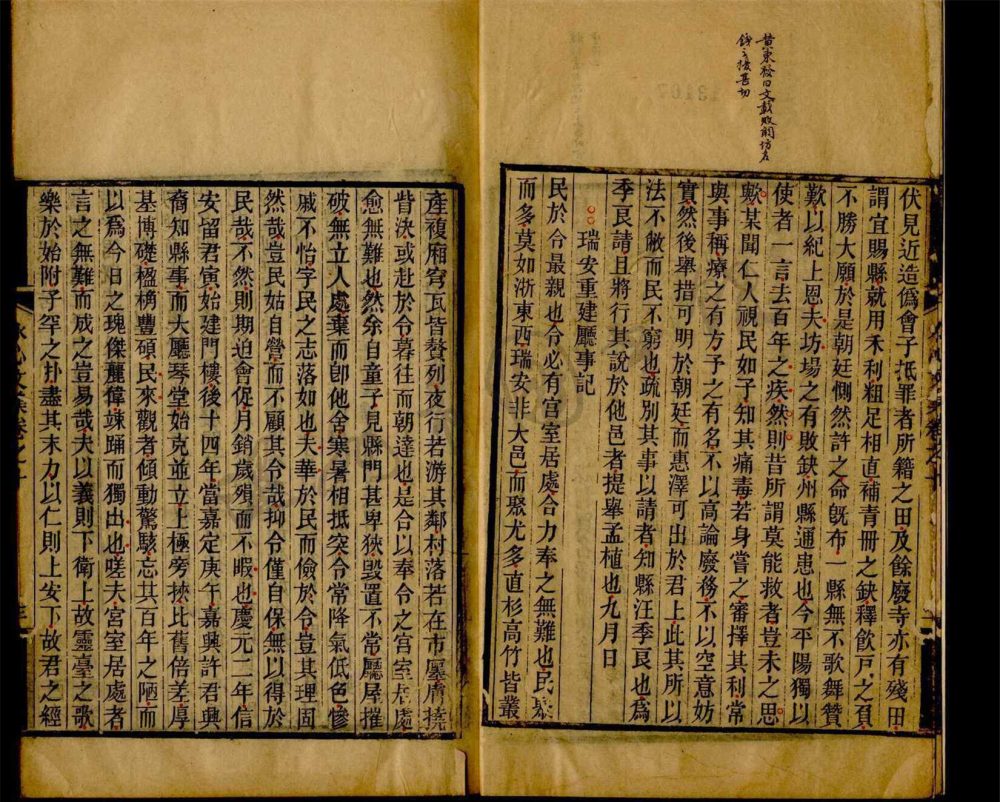 黄東發曰文載敗闕坊名
錢之擾甚切
伏見近造僞會子抵罪者所籍之田及餘廢寺亦有殘田
謂宜賜縣就用禾利粗足相直補青冊之缺釋飲戸之負
不勝大願於是朝廷惻然許之命旣布一縣無不歌舞贊
歎以紀上恩夫坊場之有敗缺州縣通患也今平陽獨以
使者一言去百年之疾然則昔所謂莫能救者豈未之思
歟某聞仁人視民如子知其痛毒若身嘗之審擇其利常
與事稱療之有方予之有名不以高論廢務不以空意妨
實然後舉措可明於朝廷而惠澤可出於君上此其所以
法不敝而民不窮也疏別其事以請者知縣汪季良也爲
季良請且將行其說於他邑者提舉孟植也九月日
瑞安重建廳事記
民於令最親也令必有宫室居處合力奉之無難也民聚
而多莫如浙東西瑞安非大邑而聚尤多直杉高竹皆叢
產複廂穹瓦皆贅列夜行若游其鄰村落若在市廛膚撓
眥決或赴於令暮往而朝達也是合以奉令之宫室居處
愈無難也然余自童子見縣門甚卑狹毀置不常廳屋摧
破無立人處棄而卽他舍寒暑相抵突令常降氣低色慘
戚不怡字民之志落如也夫華於民而儉於令豈其理固
然哉豈民姑自營而不顧其令哉抑令僅自保無以得於
民哉不然則期迫會促月銷歲殞而不暇也慶元二年信
安留君寅始建門樓後十四年當嘉定庚午嘉興許君興
裔知縣事而大廳琴堂始克並立上極旁挾比舊倍差厚
基博礎楹桷豐碩民來觀者傾動驚駭忘其百年之陋而
以爲今日之瑰傑麗偉竦踊而獨出也嗟夫宫室居處者
言之無難而成之豈易哉夫以義則下衛上故靈臺之歌
樂於始附子罕之朴盡其末力以仁則上安下故君之經